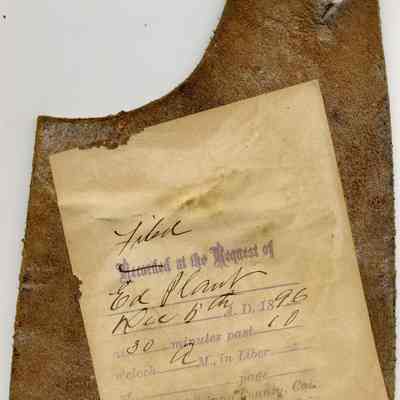 Filed
Recorded at the Request of
Ed Plant
Dec 5th A. D. 1896
at 30 minutes past 10
o'clock A M., in Liber
page
County, Cal.